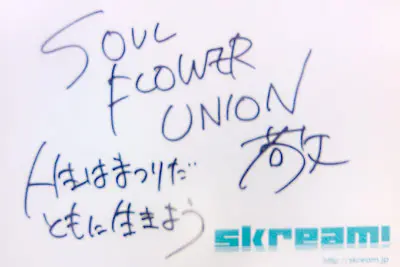 SOUL
FLOWER
UNION
敬
人生はまつりだ
ともに生きよう
skream!
http://skream.jp